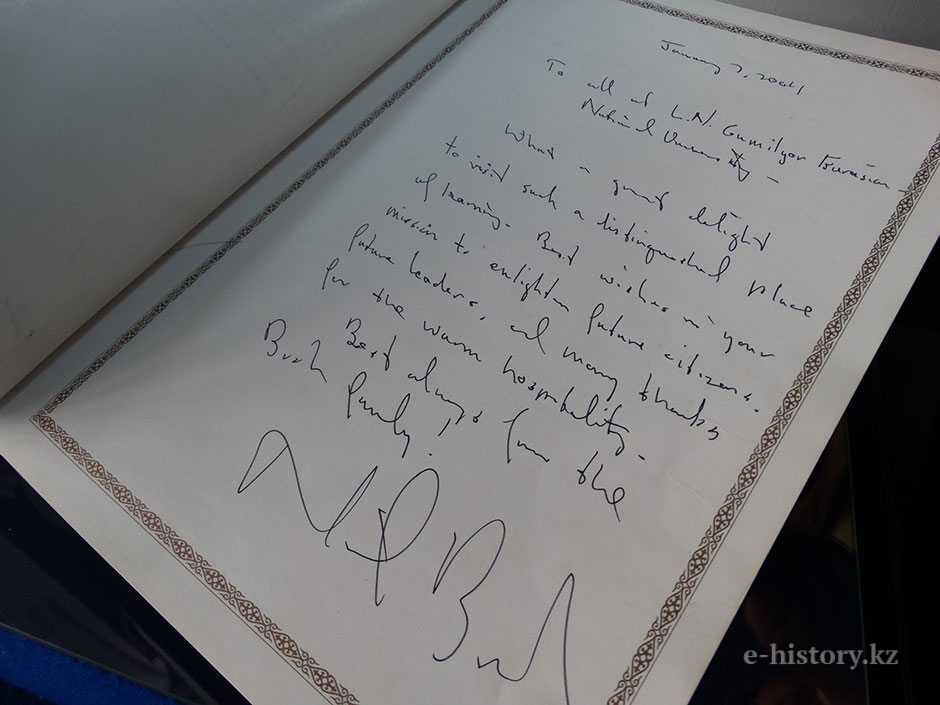 January 7, 2004
To all at L.N. Gumilyov Eurasian
National University –
What a great delight
to visit such a distinguished place
of learning. Best wishes in your
mission to enlighten future citizens,
future leaders, and many thanks
for the warm hospitality.
Best always from the
Bush family!
Neil Bush
e-history.kz